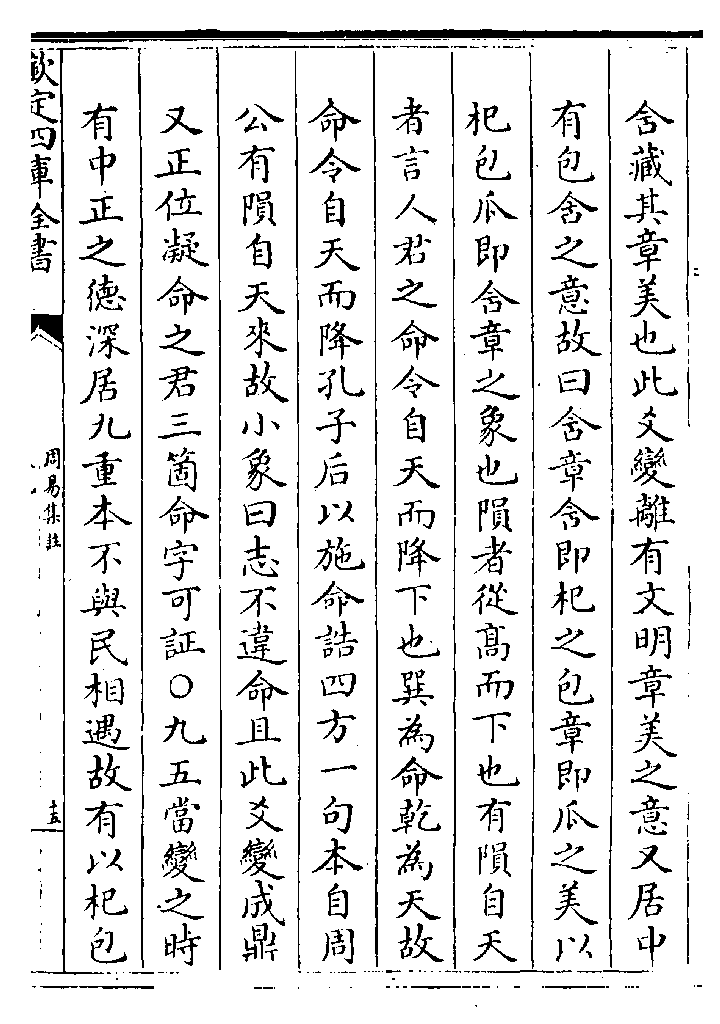 含藏其章美也此爻變離有文明章美之意又居中
有包含之意故曰含章含即杞之包章即瓜之美以
杞包瓜即含章之象也隕者從髙而下也有隕自天
者言人君之命令自天而降下也巽為命乾為天故
命令自天而降孔子后以施命誥四方一句本自周
公有隕自天來故小象曰志不違命且此爻變成鼎
又正位凝命之君三箇命字可証○九五當變之時
有中正之德深居九重本不與民相遇故有以杞包
欽定四庫全書
周易集註
十五